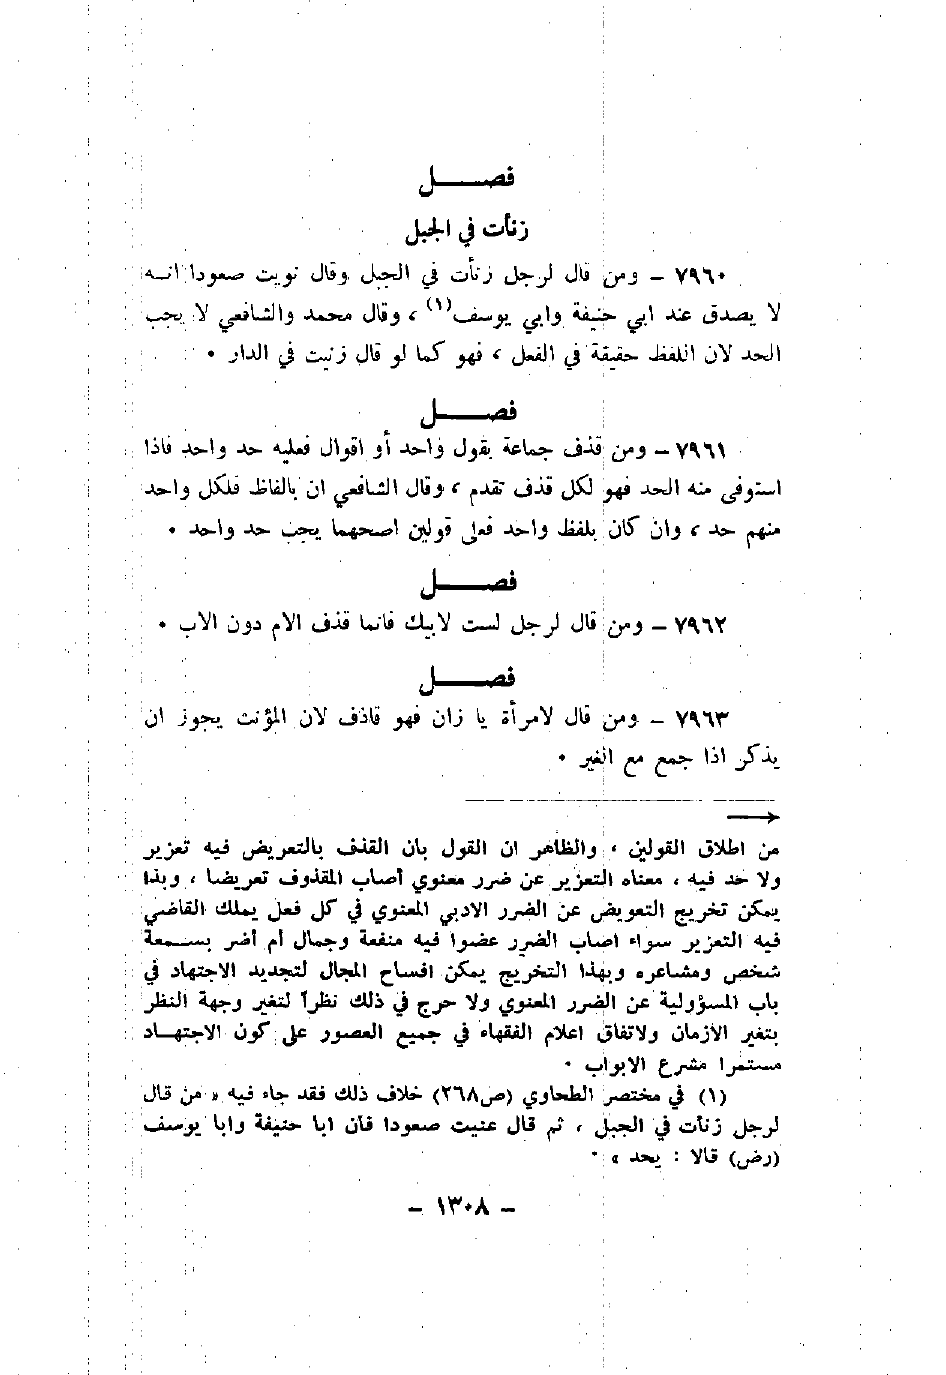 فصــــل
زنأت في الجبل
٧٩٦٠ – ومن قال لرجل زنأت في الجبل وقال نويت صعودا انــه
لا يصدق عند ابي حنيفة وابي يوسف(١) ، وقال محمد والشافعي لا يجب
الحد لان اللفظ حقيقة في الفعل ، فهو كما لو قال زنيت في الدار ٠
فصــــل
٧٩٦١ – ومن قذف جماعة بقول واحد أو اقوال فعليه حد واحد فاذا
استوفى منه الحد فهو لكل قذف تقدم ، وقال الشافعي ان بالفاظ فلكل واحد
منهم حد ، وان كان بلفظ واحد فعلى قولين اصحهما يجب حد واحد ٠
فصــــل
٧٩٦٢ – ومن قال لرجل لست لابيك فانما قذف الام دون الاب ٠
فصــــل
٧٩٦٣ – ومن قال لامرأة يا زان فهو قاذف لان المؤنث يجوز ان
يذكر اذا جمع مع الغير ٠
من اطلاق القولين ، والظاهر ان القول بان القذف بالتعريض فيه تعزير
ولا حد فيه ، معناه التعزير عن ضرر معنوي أصاب المقذوف تعريضا ، وبذا
يمكن تخريج التعويض عن الضرر الادبي المعنوي في كل فعل يملك القاضي
فيه التعزير سواء اصاب الضرر عضوا فيه منفعة وجمال أم أضر بســمعة
شخص ومشاعره وبهذا التخريج يمكن افساح المجال لتجديد الاجتهاد في
باب المسؤولية عن الضرر المعنوي ولا حرج في ذلك نظراً لتغير وجهة النظر
بتغير الأزمان ولاتفاق اعلام الفقهاء في جميع العصور على كون الاجتهــاد
مستمرا مشرع الابواب ٠
(١) في مختصر الطحاوي (ص٢٦٨) خلاف ذلك فقد جاء فيه « من قال
لرجل زنأت في الجبل ، ثم قال عنيت صعودا فان ابا حنيفة وابا يوسف
(رض) قالا : يحد » ٠
– ١٣٠٨ –